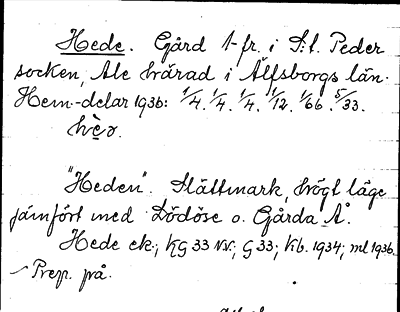 Hede. Gård 1 fr. i S:t. Peder
socken, Ale härad i Älfsborgs län.
Hem-delar 1936: 1/4. 1/4. 1/4. 1/12. 1/66. 5/33.
"Heden". Slättmark, högt läge
jämfört med Lödöse o. Gårda Å.
Hede ek.; KG 33 NV.; G 33; Kb. 1934; ml 1936.
Prep. på.